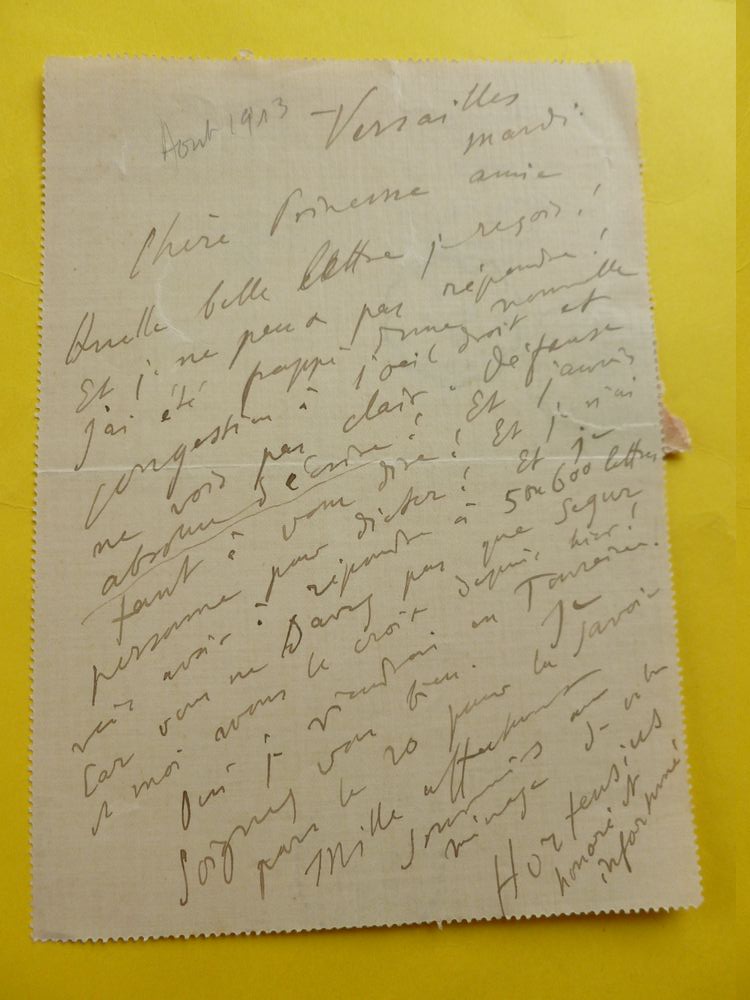 Août 1913
Versailles
mardi.
Chère Princesse amie
Quelle belle lettre je reçois!
Et je ne peux pas répondre!
J'ai été frappé d'une nouvelle
congestion à l'œil droit et
ne vois pas clair. Défense
absolue d'écrire! Et j'aurais
tant à vous dire! Et je n'ai
personne pour dicter! Et je
vais avoir à répondre à 5 ou 600 lettres
Car vous ne savez pas que Segur
et moi avons la croix depuis hier!
Oui je viendrai en Touraine.
Soignez vous bien. Je
pars le 20 pour la Savoie
Mille affectueux
souvenirs au
ménage de
Hortensius
honoré et
infortuné